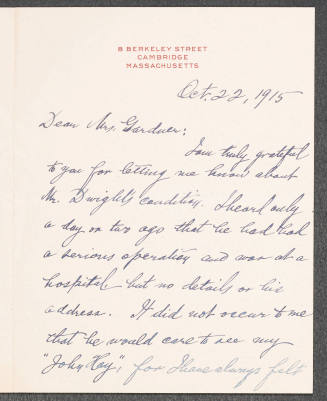 8 BERKELEY STREET
CAMBRIDGE
MASSACHUSETTS
Oct. 22, 1915
Dear Mrs. Gardner:
I am truly grateful
to you for letting me know about
Mr. Dwight's condition. I heard only
a day or two ago that he had had
a serious operation and was at a
hospital, but no details or his
address. It did not occur to me
that he would care to see my
"John Hay", for I have always felt